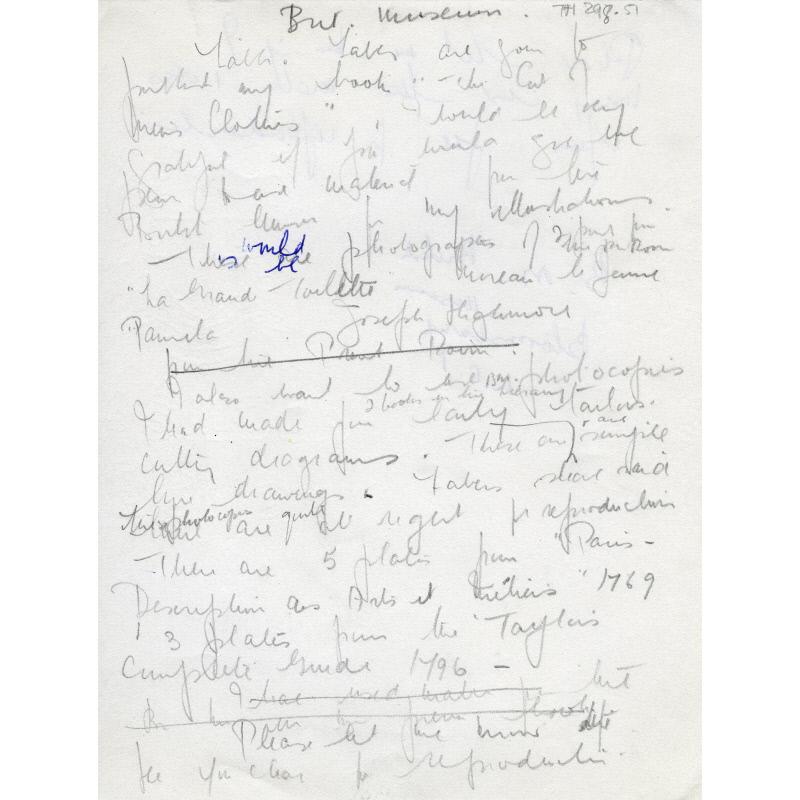 Brit. Museum. TH 298.51
Faber. Faber are going to
publish my book "The Cut of
Men's Clothes" I would be very
grateful if you would give me
to use material from the
British Museum for my illustrations.
- These would be photographs of
"La Grande Toilette" Moreau le Jeune
"Pamela Joseph Highmore
from the Print Room.
I also want to use B.M. photocopies
2 books in the library
I had made from early tailors.
cutting diagrams. These are simple
line drawings. Fabers have said
These photocopies are quite
for reproduction
- There are 5 plates from "Paris -
Description des Arts et Métiers" 1769
3 plates from the "Taylors
Complete Guide 1796 -
I have used
Please let me know the
fee you charge for reproduction.